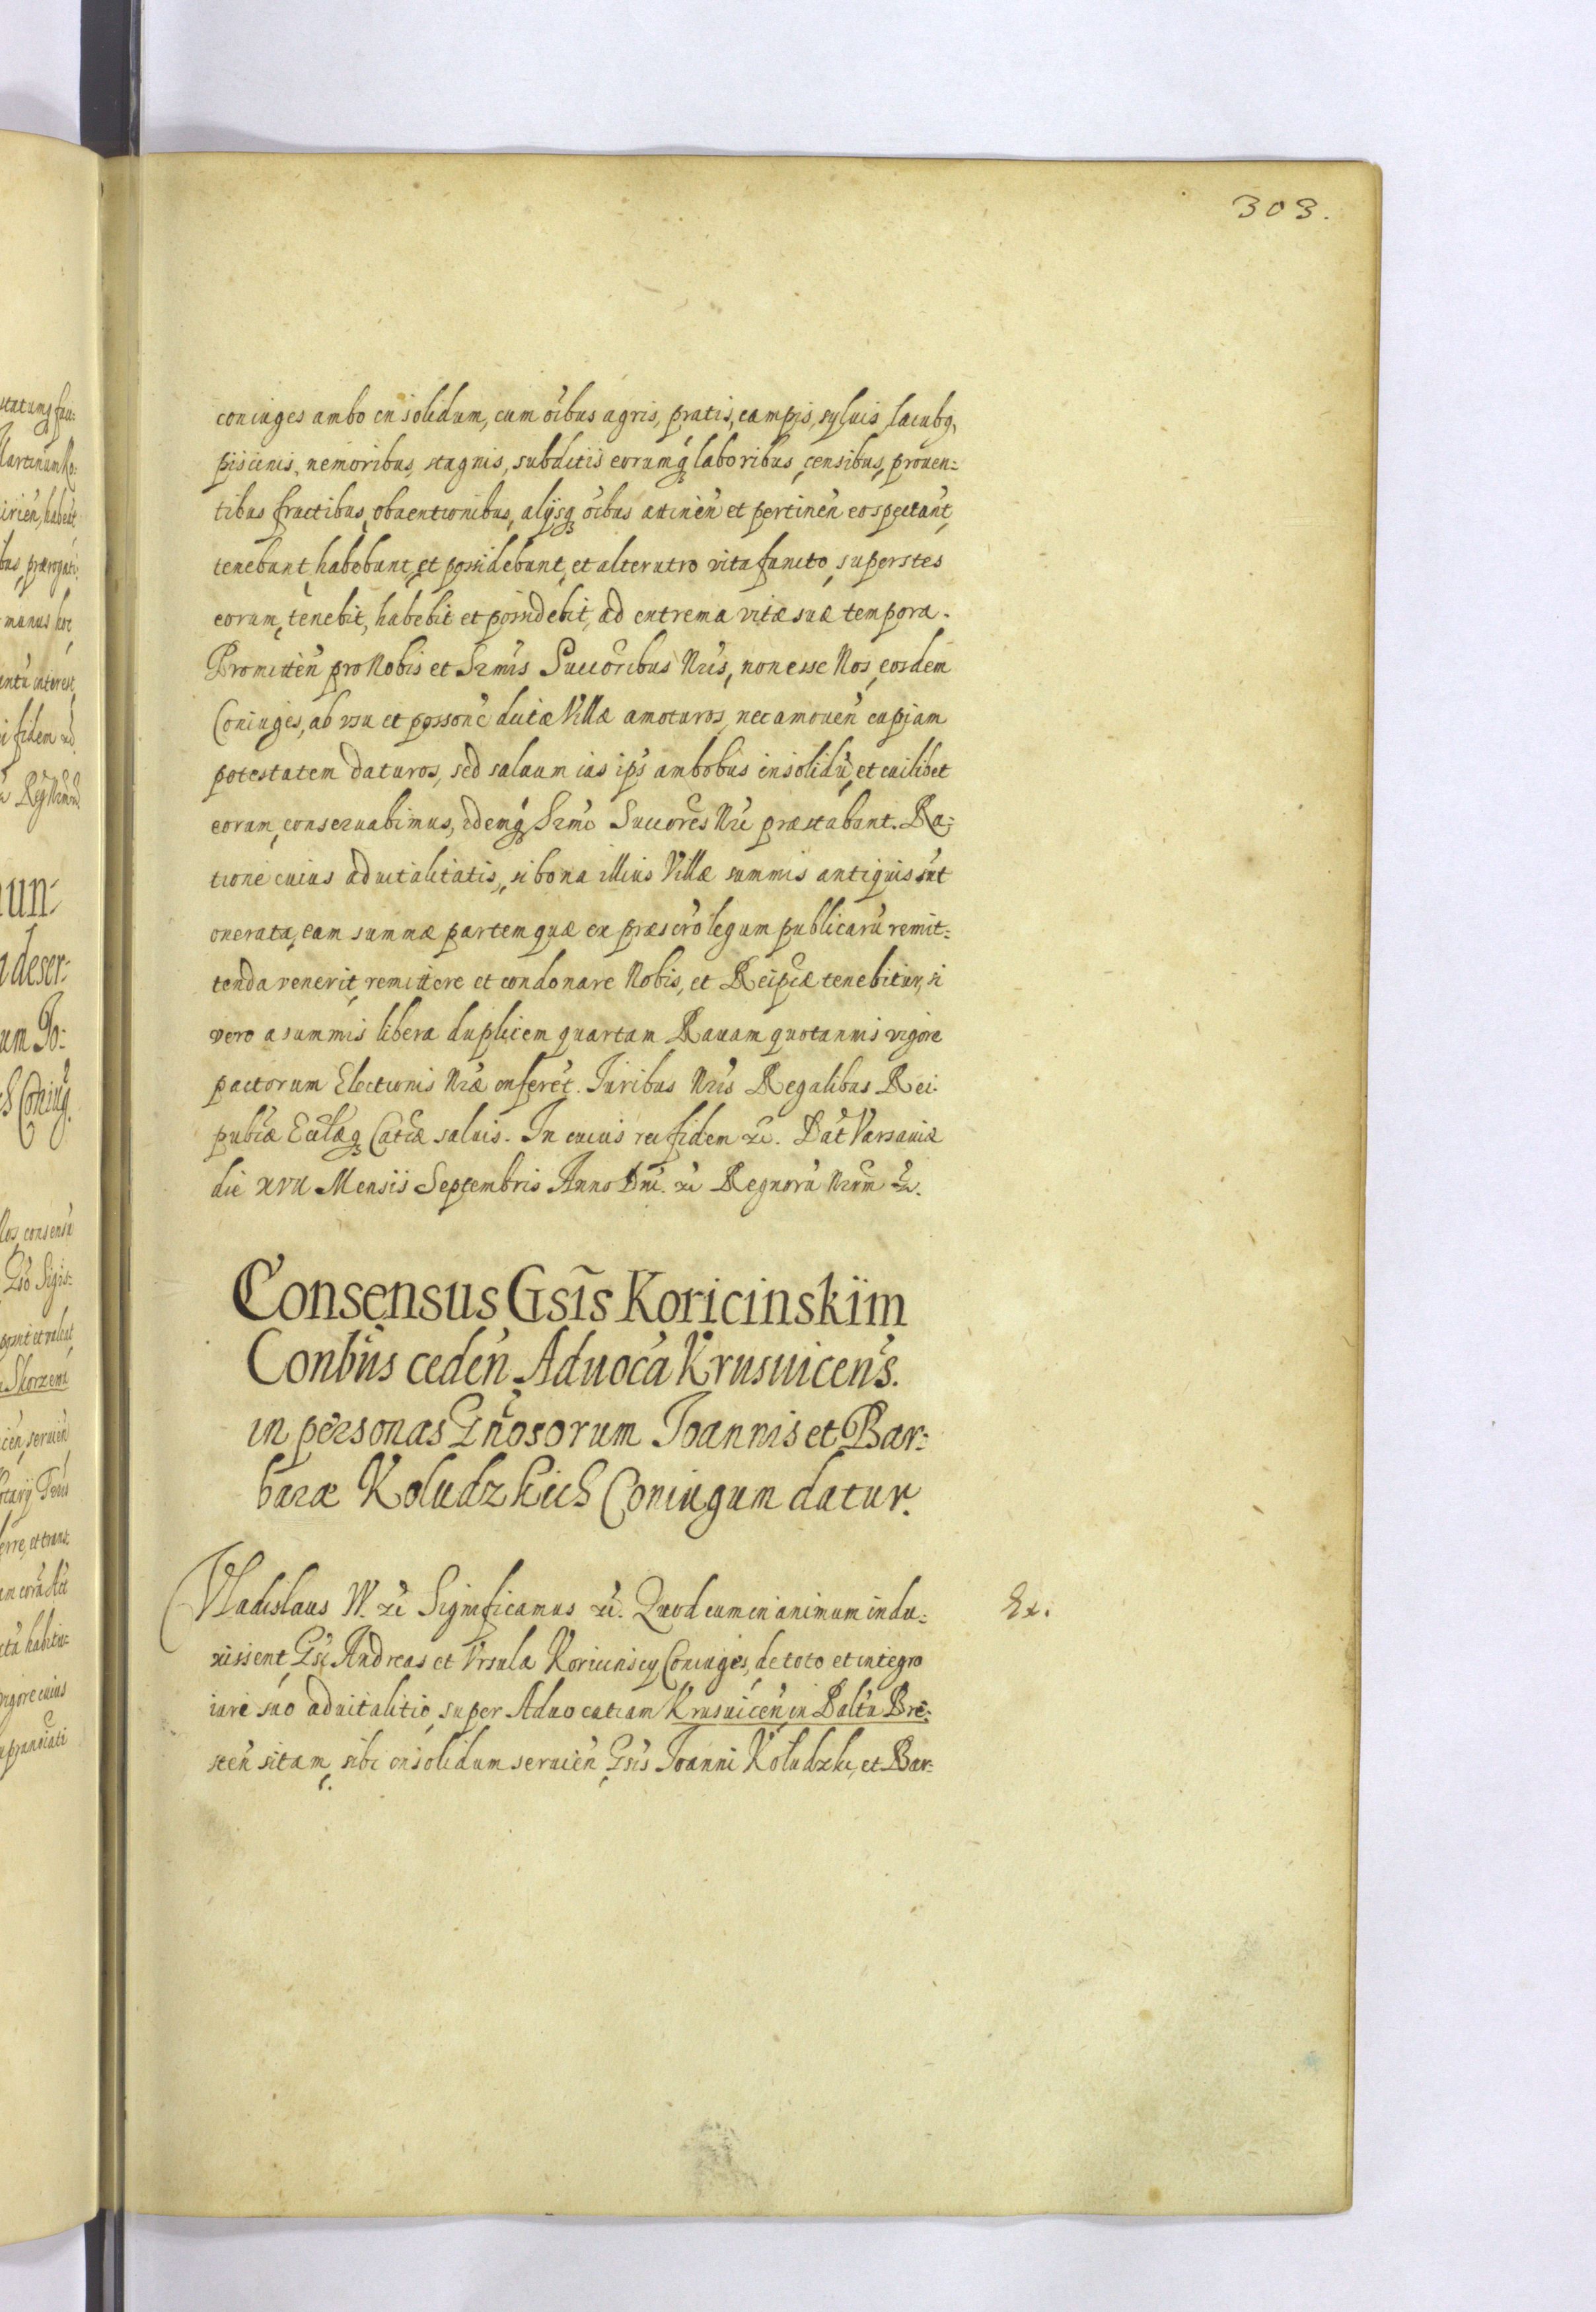 303.
coniuges ambo in solidum, cum oibus agris, pratis, campis, syluis, lacubq,
piscinis, nemoribus, stagnis, subditis eorumq laboribus, censibus, prouen-
tibus fructibus, obuentionibus, alijsq oibus attinen et pertinen eo spectant,
tenebunt, habebunt, et possidebunt, et alterutro vita functo, superstes
eorum, tenebit, habebit et possidebit, ad extrema vitæ suæ tempora.
Promitten pro Nobis et Srmis Succoribus Nris, non esse Nos, eosdem
Coniuges, ab vsu et possone dictæ Villæ amoturos, nec amouen cupiam
potestatem daturos, sed saluum ius ips ambobus insolidu, et cuilibet
eorum, conseruabimus, idemq Srmi Succores Nri præstabunt. Ra-
tione cuius aduitalitatis, si bona illius Villæ summis antiquis sut
onerata, eam summæ partem quæ ex præscro legum publicaru remit-
tenda venerit, remittere et condonare Nobis, et Reipcæ tenebitur, si
vero a summis libera duplicem quartam Rauam quotannis vigore
pactorum Electionis Nræ inferet. Iuribus Nris Regalibus Rei-
publæ Ecclæq Catcæ saluis. In cuius rei fidem &c. Dat Varsauiæ
die XVII Mensis Septembris Anno Dni. &c Regnoru Nrum &c.
Consensus Gsis Koricinskim
Conbiis ceden Aduoca Krusuicens.
in personas Gnosorum Ioannis et Bar-
baræ Koludzkich Coniugum datur.
Vladislaus IV. &c Significamus &c. Quod cum in animum indu-
xissent Gsi Andreas et Vrsula Koricinscy Coniuges, de toto et integro
iure suo aduitalitio, super Aduocatiam Krusuicen in Paltu Bre-
sten sitam, sibi insolidum seruien Gsis Ioanni Koludzki, et Bar-
Ex.